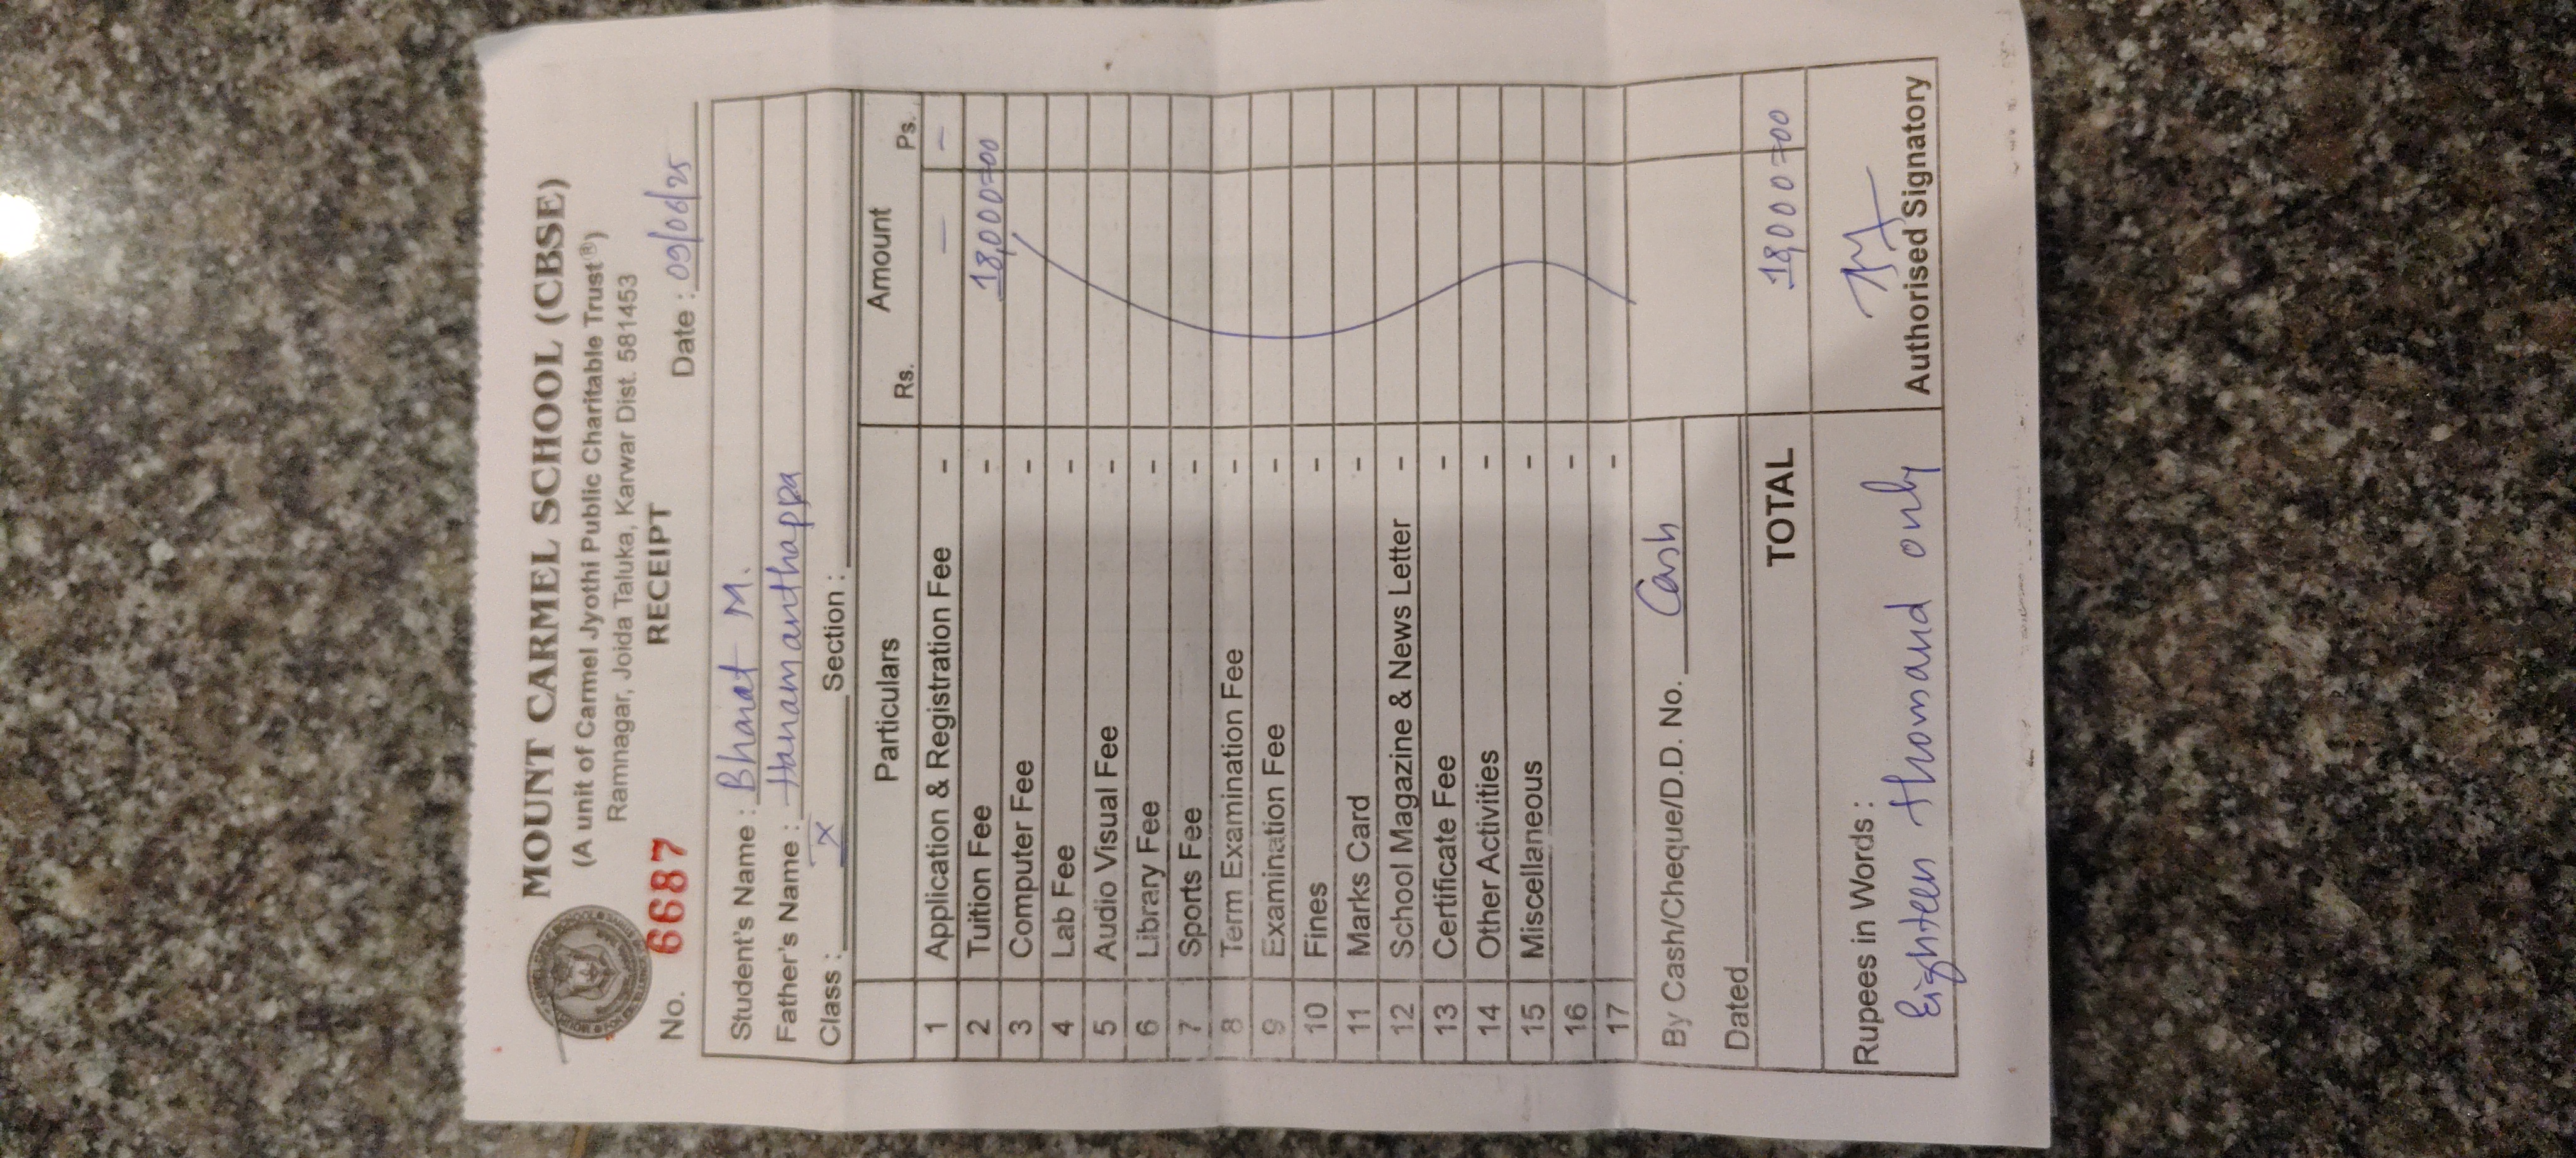 MOUNT CARMEL SCHOOL (CBSE)
(A unit of Carmel Jyothi Public Charitable Trust®)
Ramnagar, Joida Taluka, Karwar Dist. 581453
RECEIPT
No. 6687 Date : 09/06/25
Student's Name : Bharat M.
Father's Name : Hanamanthappa
Class : X Section :
Particulars Amount
Rs. Ps.
1 Application & Registration Fee - — —
2 Tuition Fee - 18,000=00
3 Computer Fee -
4 Lab Fee -
5 Audio Visual Fee -
6 Library Fee -
7 Sports Fee -
8 Term Examination Fee -
9 Examination Fee -
10 Fines -
11 Marks Card -
12 School Magazine & News Letter -
13 Certificate Fee -
14 Other Activities -
15 Miscellaneous -
16 -
17 -
By Cash/Cheque/D.D. No. Cash
Dated
TOTAL 18,000=00
Rupees in Words :
Eighteen thousand only
Authorised Signatory